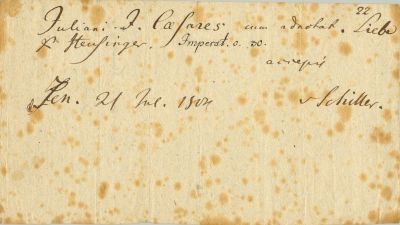 22
Juliani I. Cæsares cum adnotat. Liebe
& Heusinger. Imperat. o. vo.
accepi
Jen. 21 Jul. 1804 v Schiller.